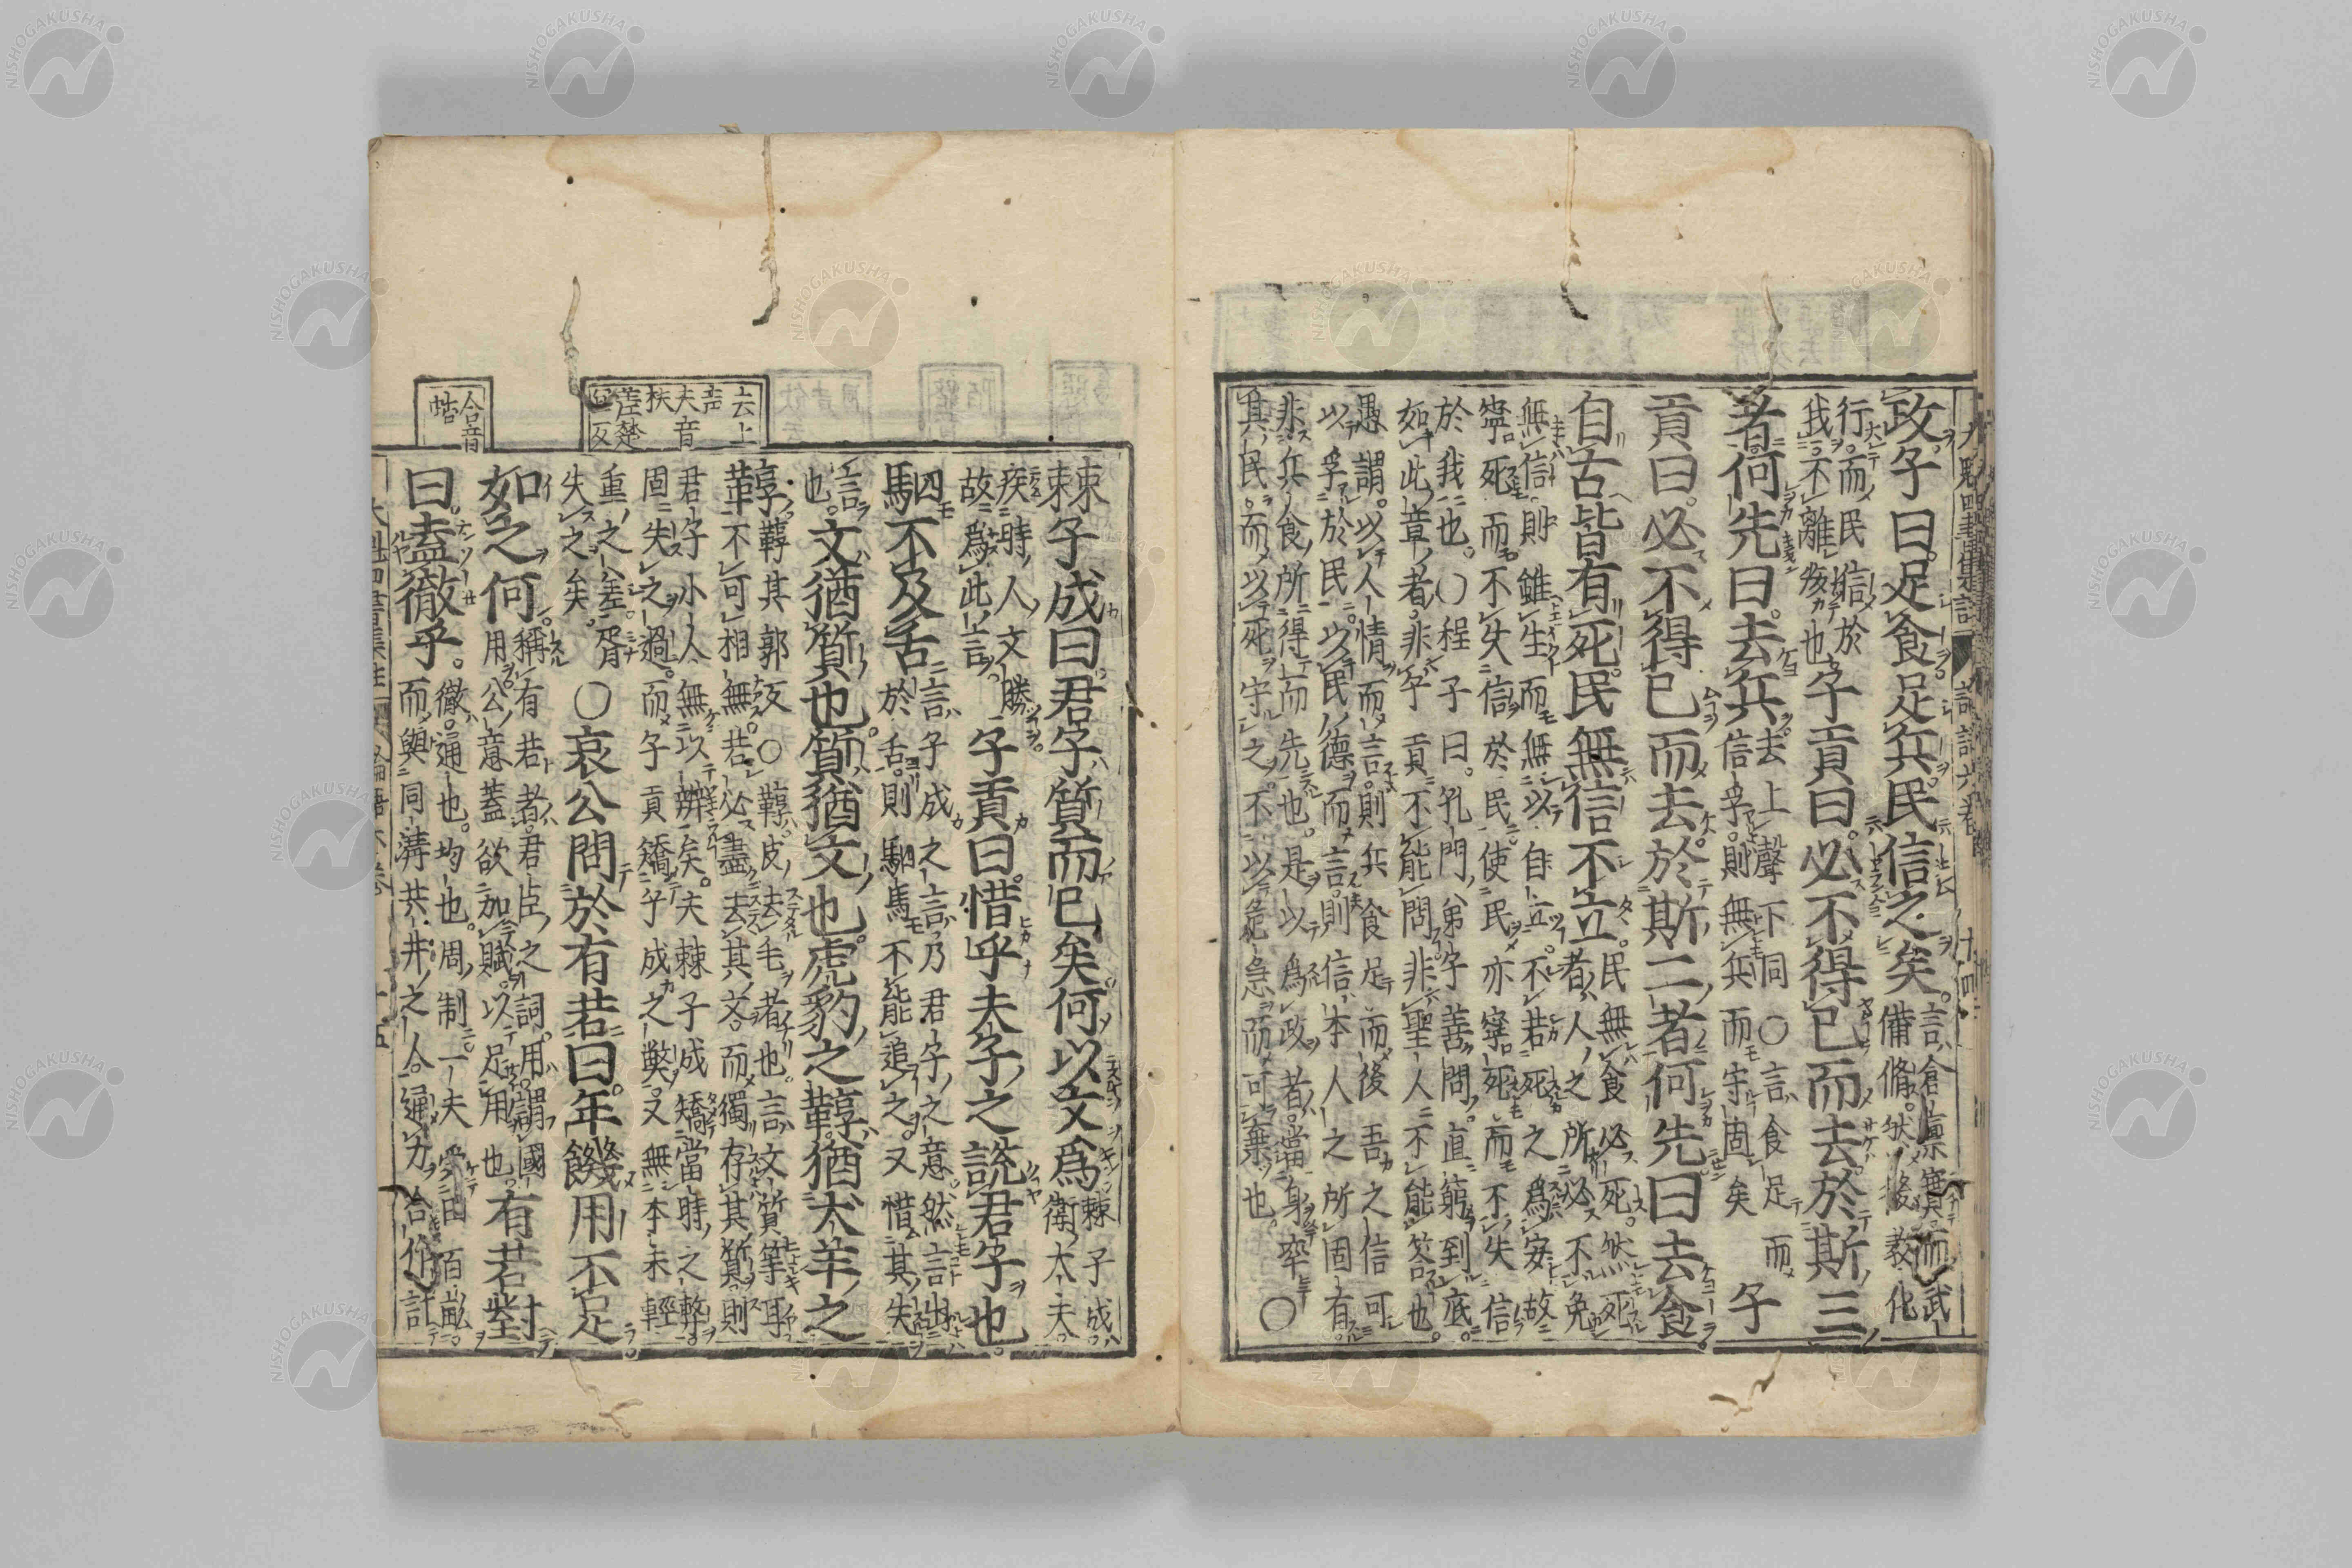 大魁四書集註 論語六卷 十四
政子曰足食足兵民信之矣
言倉廩實而武
備脩然後教化
行而民信於
我不離叛也
子貢曰必不得已而去於斯三
者何先曰去兵
去上聲下同〇言食足而
信孚則無兵而守固矣
子
貢曰必不得已而去於斯二者何先曰去食
自古皆有死民無信不立
民無食必死然死
者人之所必不免
無信則雖生而無以自立不若死之爲安故
寧死而不失信於民使民亦寧死而不失信
於我也〇程子曰孔門弟子善問直窮到底
如此章者非子貢不能問非聖人不能答也
愚謂以人情而言則兵食足而後吾之信可
以孚於民以民德而言則信本人之所固有
非兵食所得而先也是以爲政者當身率
其民而以死守之不以危急而可棄也
〇
棘子成曰君子質而已矣何以文爲
棘子成
衛大夫
疾時人文勝
故爲此言
子貢曰惜乎夫子之說君子也
駟不及舌
言子成之言乃君子之意然言出
於舌則駟馬不能追之又惜其失
言
也
文猶質也質猶文也虎豹之鞟猶犬羊之
去上
声
夫音
扶
差楚
宜反
鞟
鞟其郭反〇鞟皮去毛者也言文質等耳
不可相無若必盡去其文而獨存其質則
君子小人無以辨矣夫棘子成矯當時之弊
固失之過而子貢矯子成之弊又無本末輕
重之差胥
失之矣
〇哀公問於有若曰年饑用不足
合音
蛤
如之何
稱有若者君臣之詞用謂國
用公意蓋欲加賦以足用也
有若對
曰盍徹乎
徹通也均也周制一夫受田百畝
而與同溝共井之人合通力合作計
大魁四書集註 論語六卷 十五
NISHOGAKUSHA